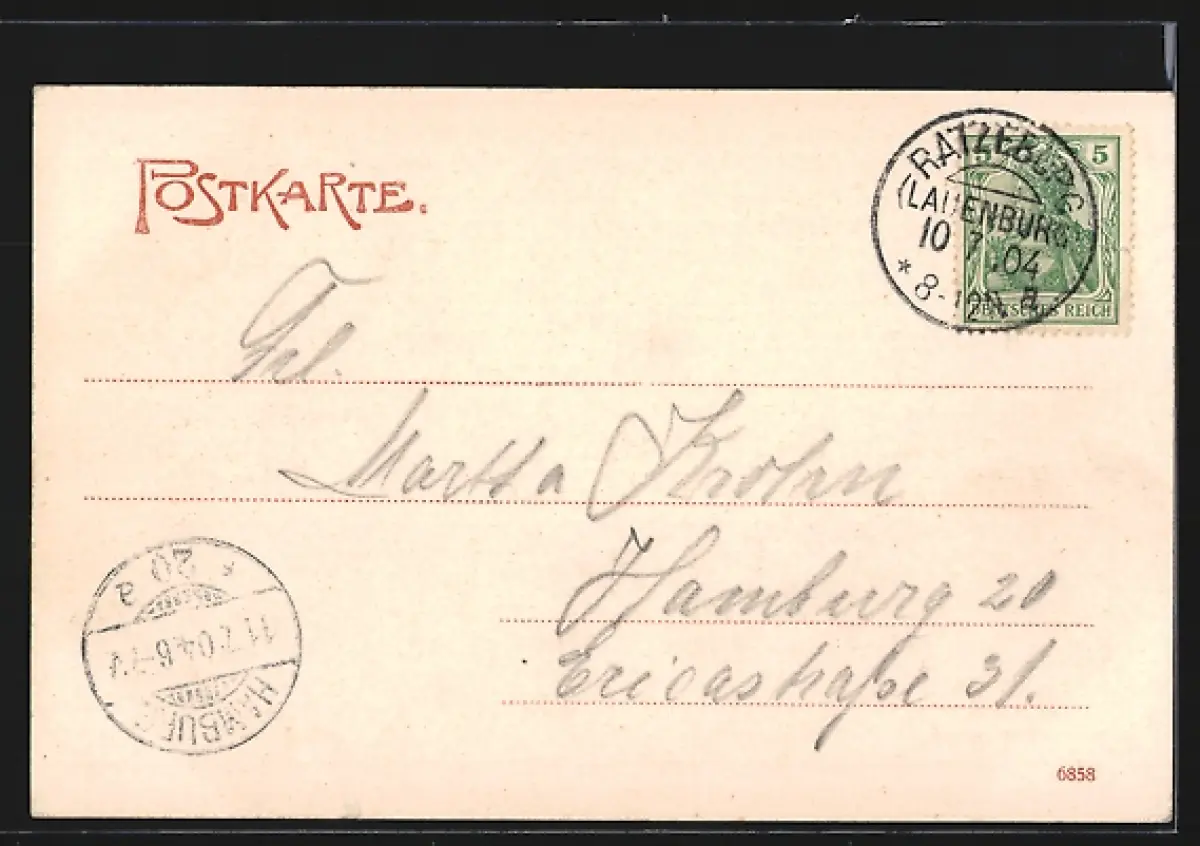 POSTKARTE.
RATZEBURG
(LAUENBURG)
10 7 .04
* 8-12N. a
5 5
DEUTSCHES REICH
Frl.
Martha Krohn
Hamburg 20
Ericastraße 31.
* 20 a
11.7.04.6-7V
HAMBURG
6858